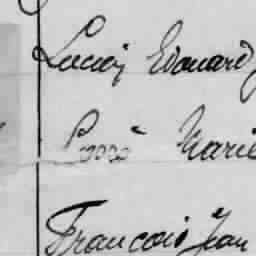 Lucien Edouard
Marie
François Jean